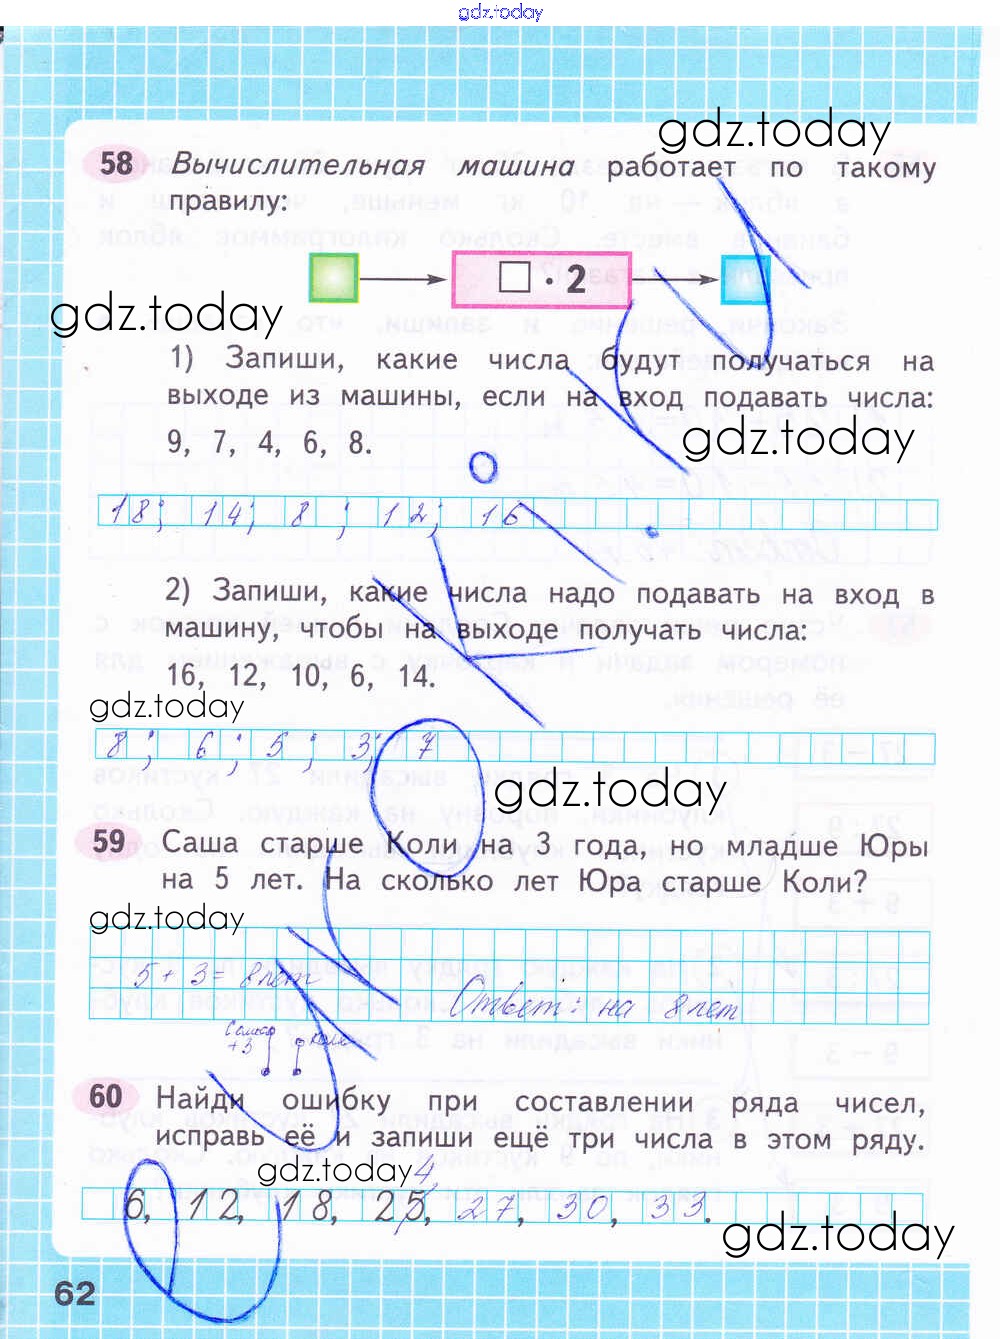 gdz.today
gdz.today
58 Вычислительная машина работает по такому
правилу:
□ · 2
gdz.today
1) Запиши, какие числа будут получаться на
выходе из машины, если на вход подавать числа:
9, 7, 4, 6, 8.
gdz.today
18; 14; 8; 12; 16
2) Запиши, какие числа надо подавать на вход в
машину, чтобы на выходе получать числа:
16, 12, 10, 6, 14.
gdz.today
8; 6; 5; 3; 7
gdz.today
59 Саша старше Коли на 3 года, но младше Юры
на 5 лет. На сколько лет Юра старше Коли?
gdz.today
5 + 3 = 8 лет
Ответ: на 8 лет
+3
60 Найди ошибку при составлении ряда чисел,
исправь её и запиши ещё три числа в этом ряду.
gdz.today
4
6, 12, 18, 25, 27, 30, 33.
gdz.today
62